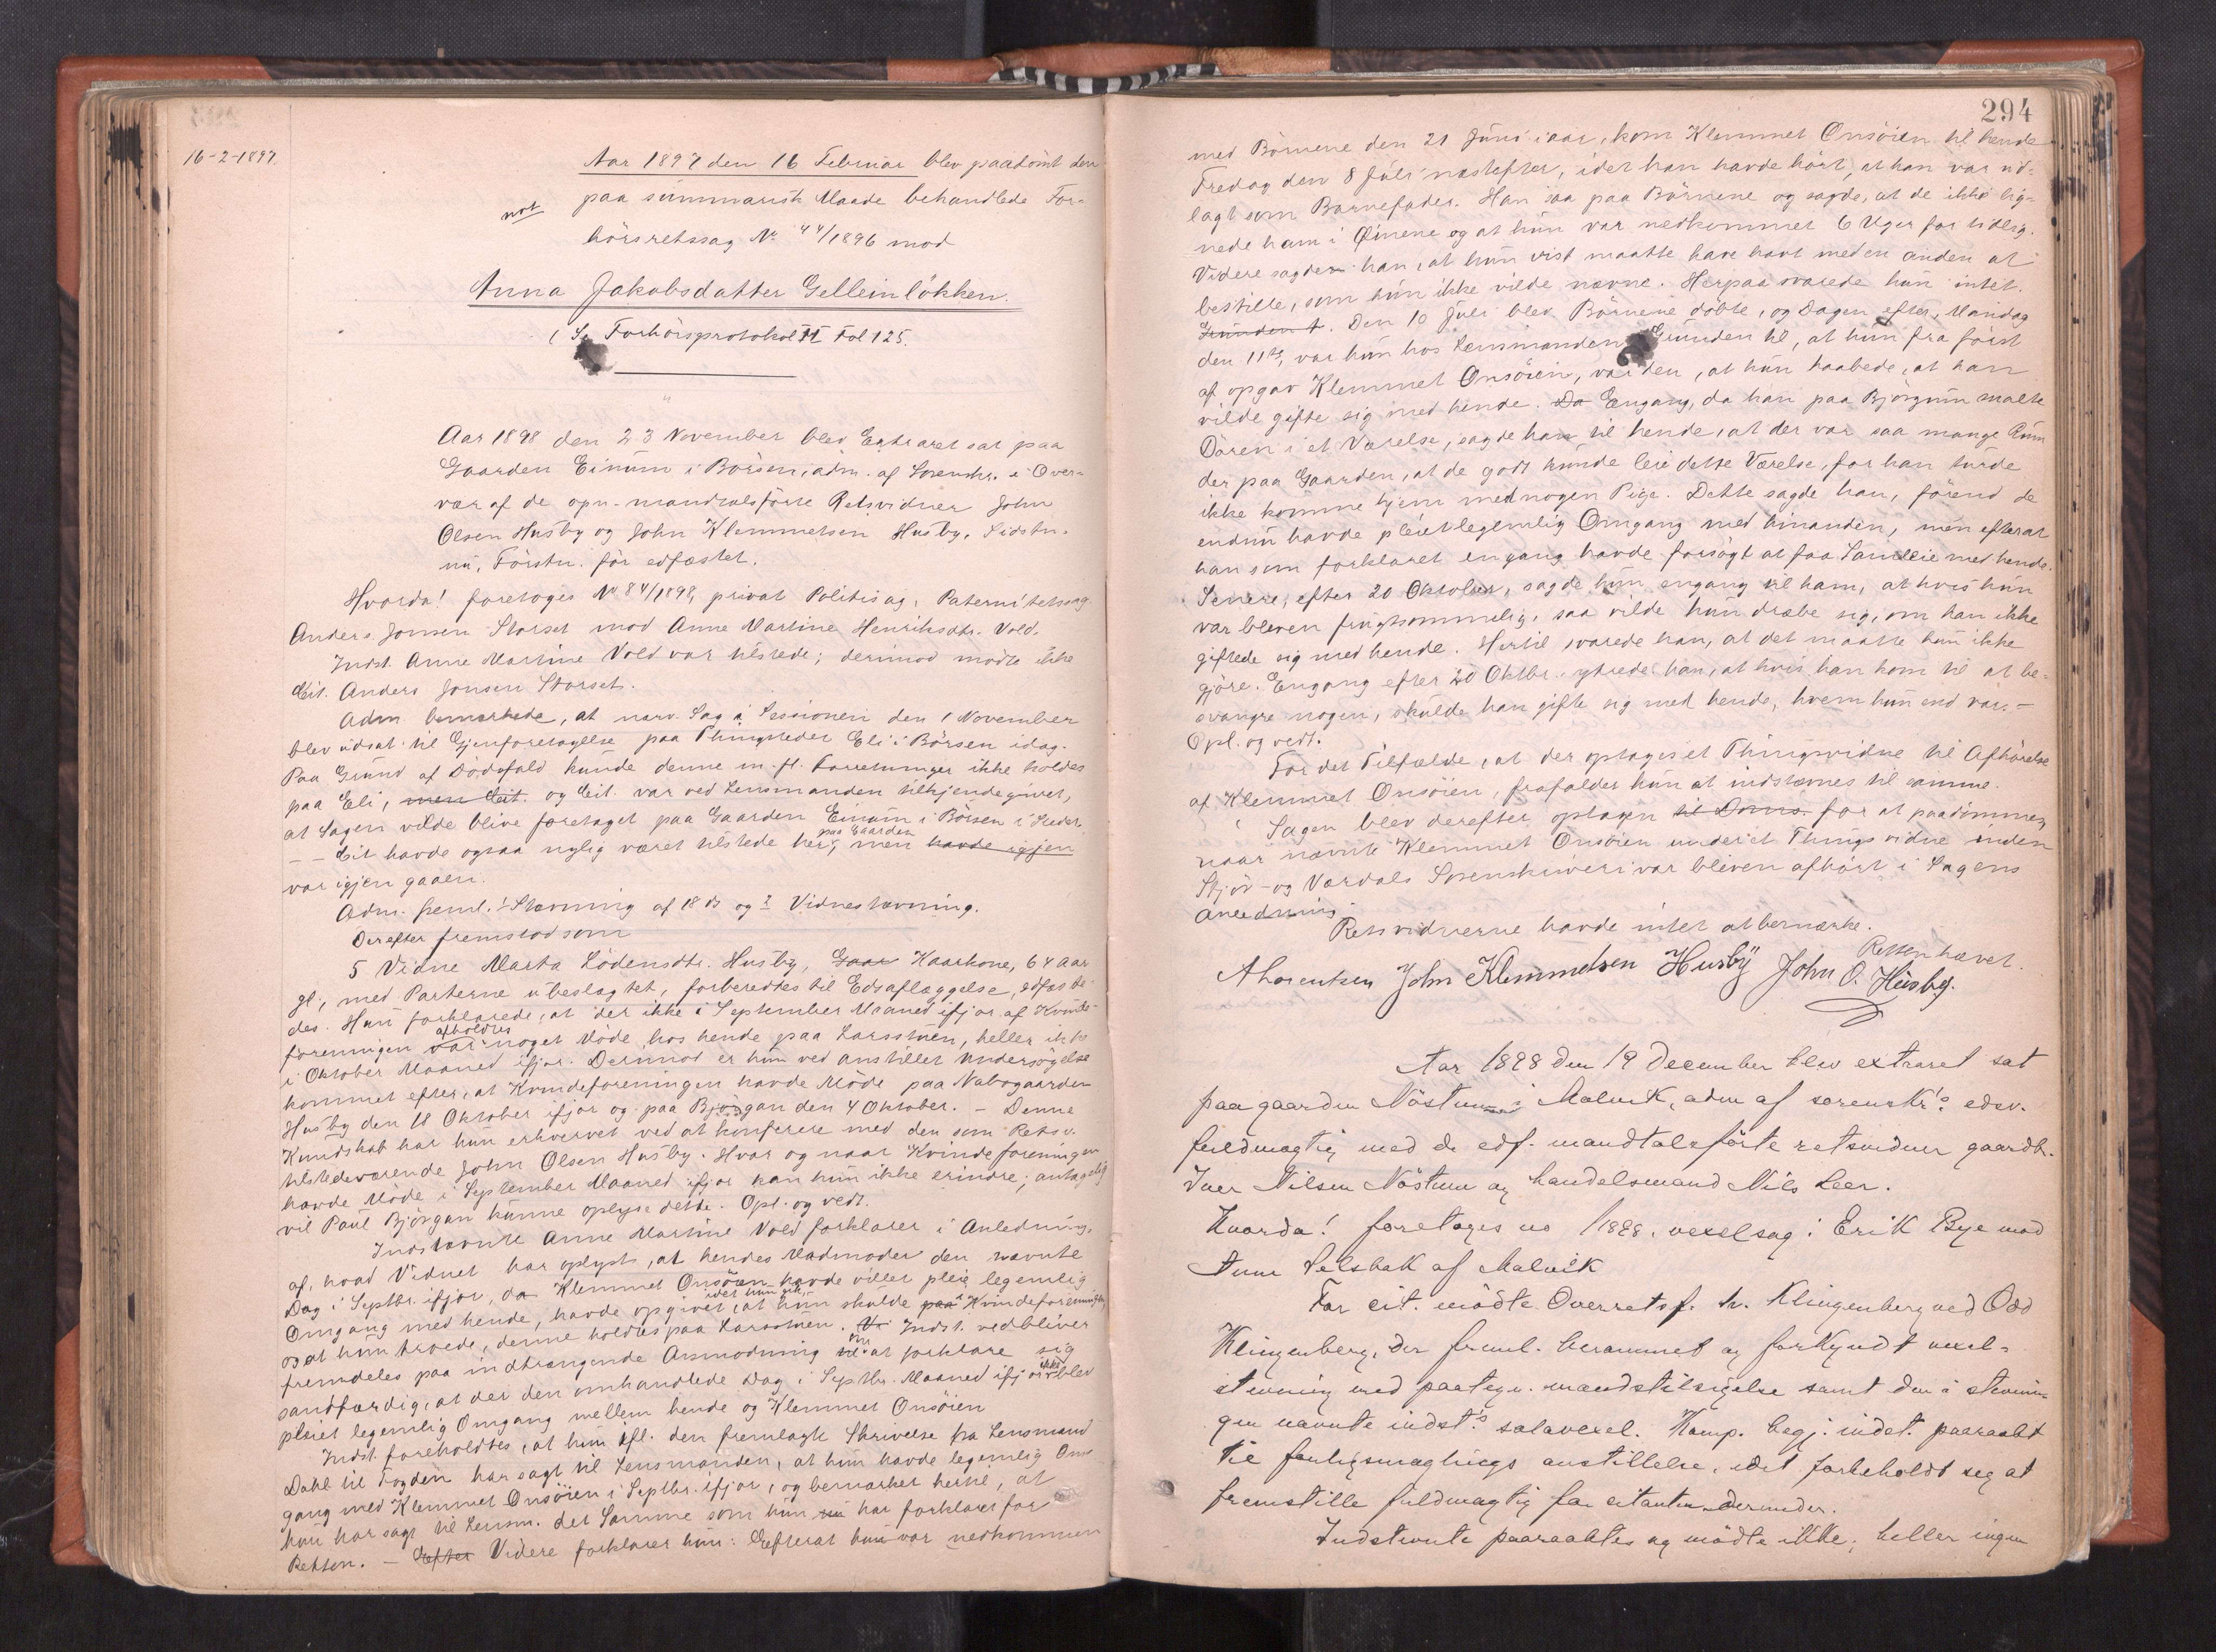 16-2-1897.
Aar 1897 den 16 Februar blev paadömt den
paa summarisk Maade behandlede For-
not
hörsretssag No 44/1896 mod
Anna Jakobsdatter Gelleinlökken.
(Se Forhörsprotokol II Fol 125.
Aar 1898 den 23 November blev Extraret sat paa
Gaarden Einum i Börsen, adm. af Sorenskr. i Over-
vær af de opn. mandtalsförte Retsvidner John
Olsen Husby og John Klemmetsen Husby, Sidstn.
nu, Förstn. för edfæstet.
Hvorda! foretoges No 84/1898, privat Politisag, Paternitetssag
Anders Jonsen Storset mod Anne Martine Henriksdtr. Vold.
Indst. Anne Martine Vold var tilstede; derimod mödte ikke
Cit. Anders Jonsen Storset.
Adm. bemærkede, at nærv. Sag i Sessionen den 1 November
blev udsat til Gjenforetagelse paa Thingstedet Eli i Börsen idag.
Paa Grund af Dödsfald kunde denne m. fl. Forretninger ikke holdes
paa Eli, men Cit. og Cit. var ved Lensmanden tilkjendegivet,
at Sagen vilde blive foretaget paa Gaarden Einum i Börsen i Stedet.
- - Cit havde ogsaa nylig været tilstede her paa Gaarden, men havde igjen
var igjen gaaen.
Adm. freml. Stævning af 18 ds og Vidnestævning.
Derefter fremstod som
5 Vidne Marta Lödensdtr. Husby, Gaar Kaarkone, 64 Aar
gl., med Parterne ubeslægtet, forberedtes til Edsaflæggelse, edfæste-
des. Hun forklarede, at der ikke i September Maaned ifjor af Kvinde-
foreningen var afholdtes noget Möde hos hende paa Larsstuen, heller ikke
i Oktober Maaned ifjor. Derimod er hun ved anstillet Undersögelse
kommet efter, at Kvindeforeningen havde Möde paa Nabogaarden
Husby den 18 Oktober ifjor og paa Björgan den 4 Oktober. - Denne
Kundskab har hun erhvervet ved at konferere med den som Retsv.
tilstedeværende John Olsen Husby. Hvor og naar Kvindeforeningen
havde Möde i September Maaned ifjor kan hun ikke erindre; antagelig
vil Paul Björgan kunne oplyse dette. Opl. og vedt.
Indstævnte Anne Martine Vold forklarer i Anledning
af, hvad Vidnet har oplyst, at hendes Madmoder den nævnte
Dag i Septbr. ifjor, da Klemmet Onsöien havde villet pleie legemlig
Omgang med hende, havde opgivet, idet hun gik, at hun skulde paa i Kvindeforeningen,
og at hun troede, denne holdtes paa Larsstuen. Indst. vedbliver
fremdeles paa indtrængende Anmodning til om at forklare sig
sandfærdig, at der den omhandlede Dag i Septbr. Maaned ifjor ikke blev
pleiet legemlig Omgang mellem hende og Klemmet Onsöien
Indst. foreholdtes, at hun ifl. den fremlagte Skrivelse fra Lensmand
Dahl til Fogden har sagt til Lensmanden, at hun havde legemlig Om-
gang med Klemmet Onsöien i Septbr. ifjor, og bemærket hertil, at
hun har sagt til Lensm. det Samme som hun nu har forklaret for
Retten. - Efter Videre forklarer hun: Efterat hun var nedkommen
294
med Börnene den 21 Juni iaar, kom Klemmet Onsöien til hende
Fredag den 8 Juli næstefter, idet han havde hört, at han var ud-
lagt som Barnefader. Han saa paa Börnene og sagde, at de ikke lig-
nede ham i Öinene og at hun var nedkommet 6 Uger for tidlig.
Videre sagde han, at hun vist maatte have havt med en anden at
bestille, som hun ikke vilde nævne. Herpaa svarede hun intet.
Grunden t. Den 10 Juli blev Börnene döbte, og Dagen efter, Mandag
den 11te, var hun hos Lensmanden. Grunden til, at hun fra först
af opgav Klemmet Onsöien, var den, at hun haabede, at han
vilde gifte sig med hende. Da Engang, da han paa Björgum malte
Dören i et Værelse, sagde han til hende, at der var saa mange Rum
der paa Gaarden, at de godt kunde leie dette Værelse, for han turde
ikke komme hjem med nogen Pige. Dette sagde han, förend de
endnu havde pleiet legemlig Omgang med hinanden, men efterat
han som forklaret engang havde forsögt at faa Samleie med hende.
Senere, efter 20 Oktober, sagde hun engang til ham, at hvis hun
var bleven frugtsommelig, saa vilde hun dræbe sig, om han ikke
giftede sig med hende. Hertil svarede han, at det maatte hun ikke
gjöre. Engang efter 20 Oktbr. ytrede han, at hvis han kom til at be-
svangre nogen, skulde han gifte sig med hende, hvem hun end var. -
Opl. og vedt.
For det Tilfælde, at der optages et Thingsvidne til Afhörelse
af Klemmet Onsöien, frafalder hun at indstævnes til samme.
Sagen blev derefter optagen til Doms. for at paadömmes,
naar nævnte Klemmet Onsöien under et Thingsvidne inden
Stjör- og Værdals Sorenskriveri var bleven afhört i Sagens
Anledning.
Retsvidnerne havde intet at bemærke.
Retten hævet.
A Lorentsen John Klemmetsen Husby John O. Husby.
Aar 1898 den 19 December blev extraret sat
paa gaarden Nöstum i Malvik, adm af sorenskr's edsv.
fuldmægtig med de edf. mandtalsförte retsvidner gaardb.
Iver Nilsen Nöstum og handelsmand Nils Leer.
Hvorda! foretoges no /1898, vexelsag: Erik Bye mod
Anne Velsbak af Malvik
For cit. mödte Overretssf. hr. Klingenberg ved Odd
Klingenberg, der freml. berammet og forkyndt vexel-
stevning med paategn. mandstilsigelse samt den i stevnin-
gen nævnte indst's solavexel. Komp. begj. indst. paaraabt
til forligsmæglings anstillelse, idet forbeholdt sig at
fremstille fuldmægtig for citanten derunder.
Indstevnte paaraabtes og mödte ikke; heller ingen